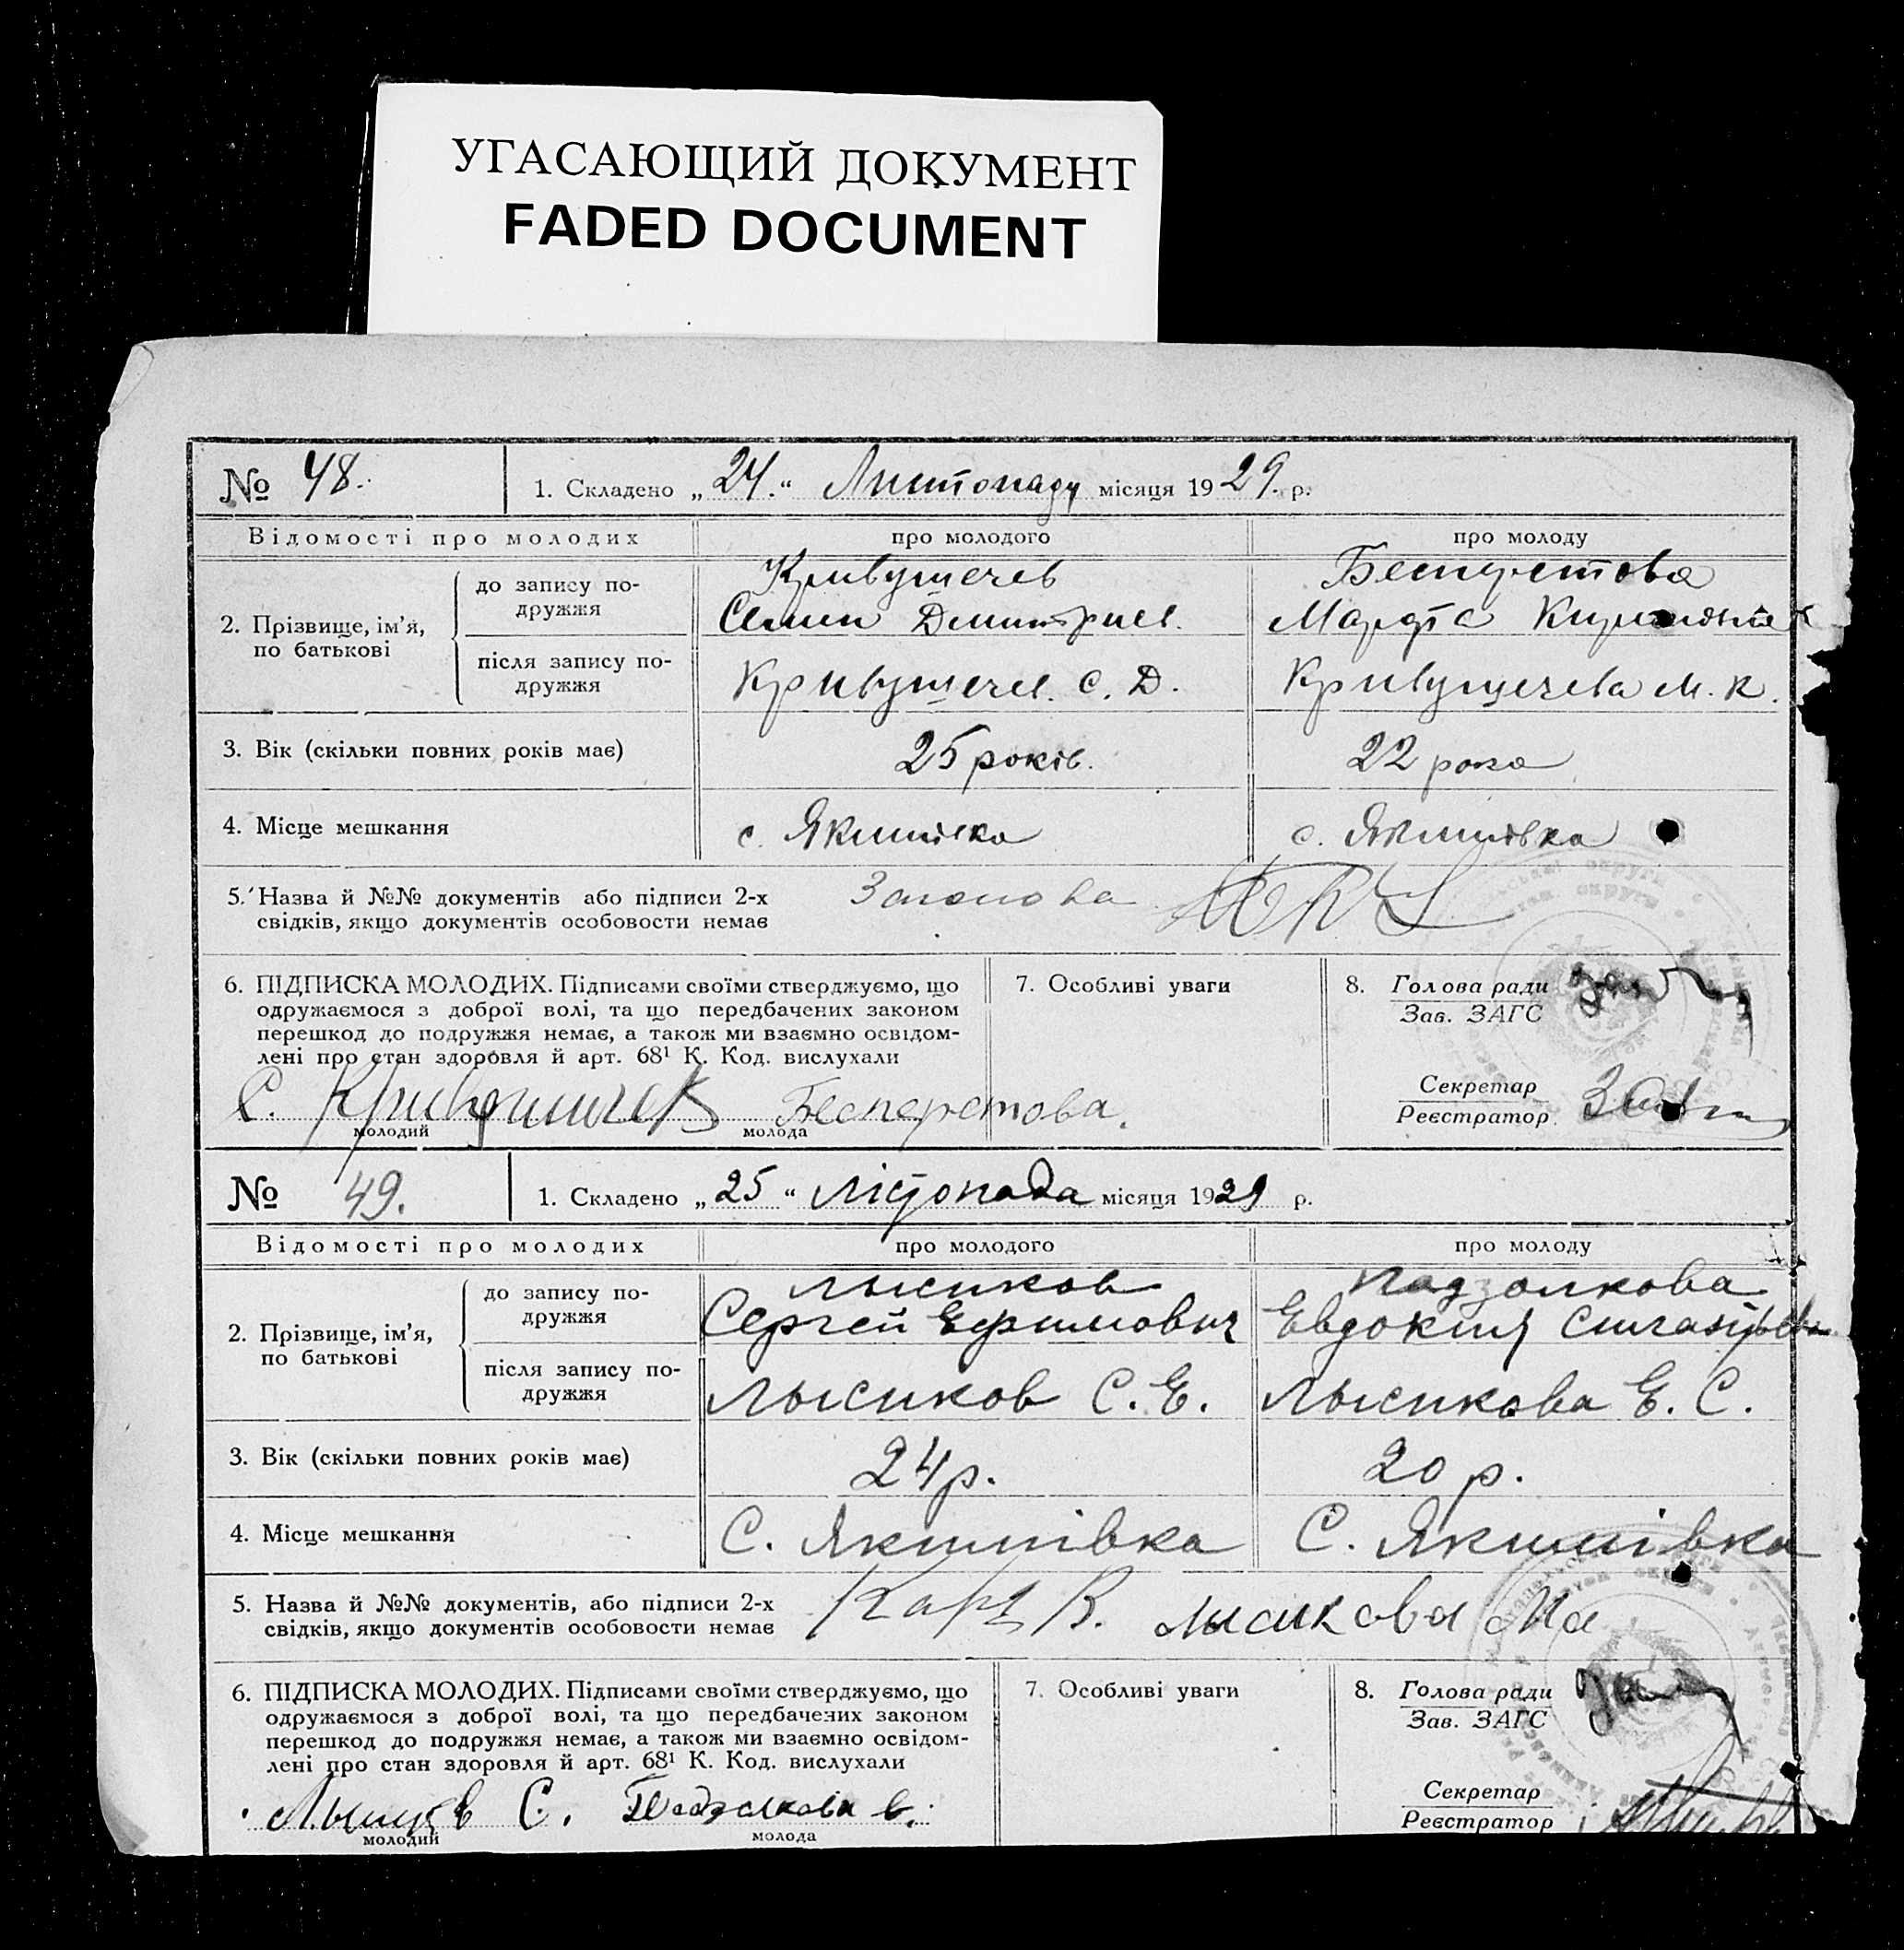 УГАСАЮЩИЙ ДОКУМЕНТ
FADED DOCUMENT
№ 48. 1. Складено „24.“ Листопаду місяця 1929. р.
Відомості про молодих про молодого про молоду
2. Прізвище, ім’я, по батькові
до запису подружжя
Кривушечев
Семен Дмитриев.
Мардта
після запису подружжя
Кривушечев. С. Д.
Кривушечева М. К.
3. Вік (скільки повних років має) 25 років. 22 рока
4. Місце мешкання с. Якимівка с. Якимівка
5. Назва й №№ документів або підписи 2-х
свідків, якщо документів особовости немає
6. ПІДПИСКА МОЛОДИХ. Підписами своїми стверджуємо, що
одружаємося з доброї волі, та що передбачених законом
перешкод до подружжя немає, а також ми взаємно освідом-
лені про стан здоровля й арт. 68¹ К. Код. вислухали
7. Особливі уваги
8. Голова ради
Зав. ЗАГС
Секретар
Реєстратор
С. Бесперстова.
молодий молода
№ 49. 1. Складено „25“ Лістопада місяця 1929 р.
Відомості про молодих про молодого про молоду
2. Прізвище, ім’я, по батькові
до запису подружжя
Лысиков
Сергей Ефимович
Падзолкова
Евдокия
після запису подружжя
Лысиков С. Е.
Лысикова Е. С.
3. Вік (скільки повних років має) 24 р. 20 р.
4. Місце мешкання С. Якимівка С. Якимівка
5. Назва й №№ документів, або підписи 2-х
свідків, якщо документів особовости немає
Лысикова Ма
6. ПІДПИСКА МОЛОДИХ. Підписами своїми стверджуємо, що
одружаємося з доброї волі, та що передбачених законом
перешкод до подружжя немає, а також ми взаємно освідом-
лені про стан здоровля й арт. 68¹ К. Код. вислухали
7. Особливі уваги
8. Голова ради
Зав. ЗАГС
Секретар
Реєстратор
С.
молодий молода